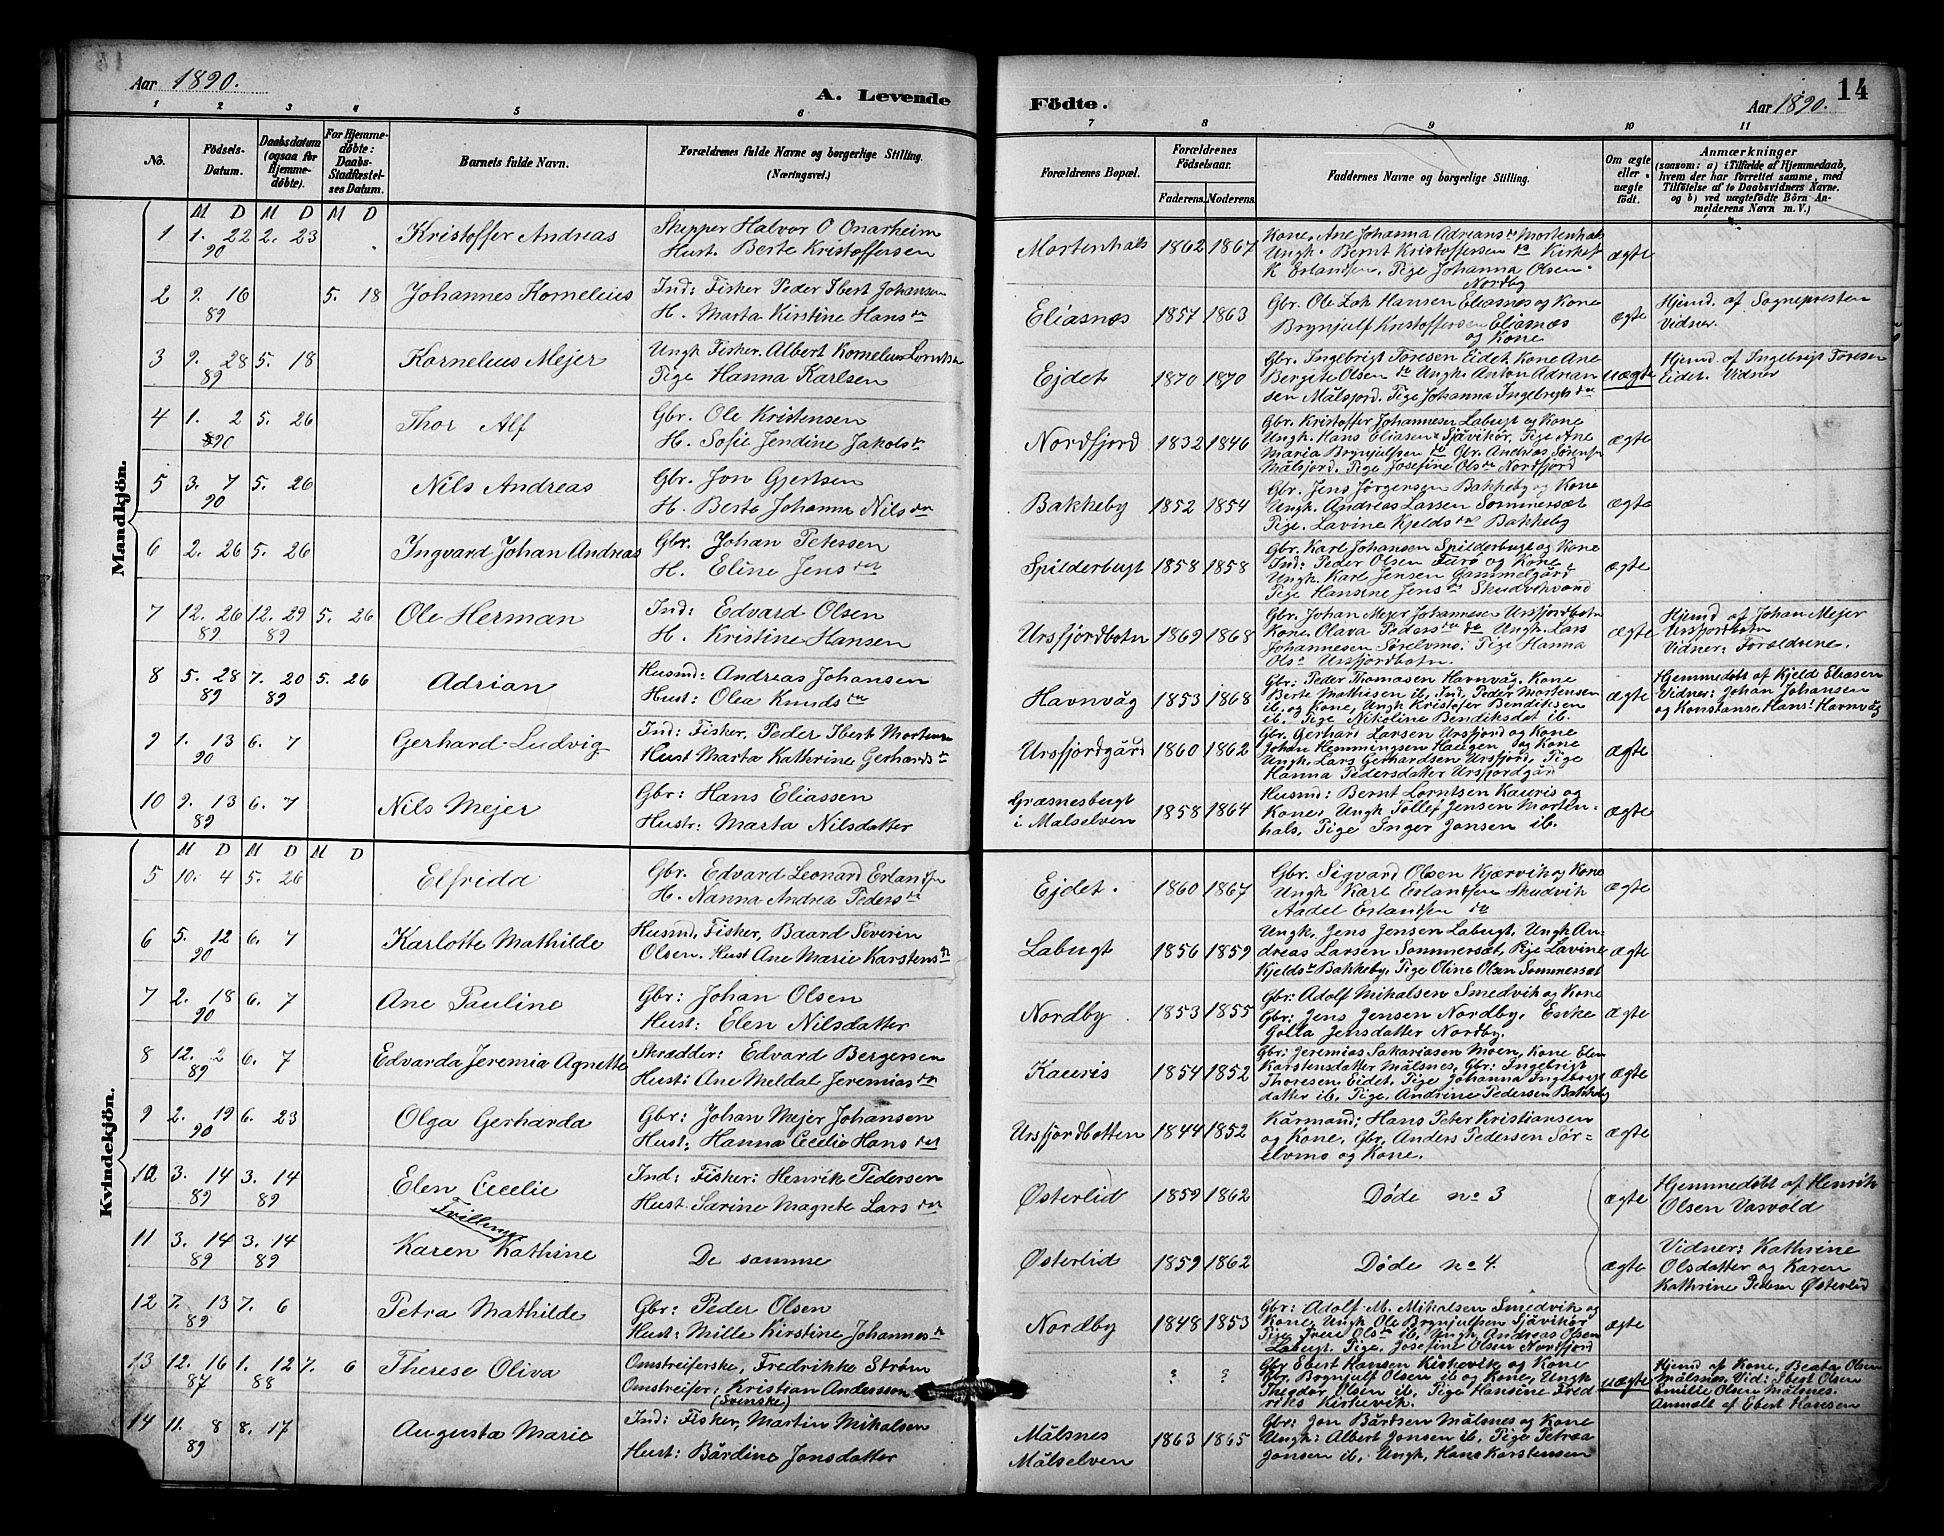 Aar 1890.
A. Levende
Födte.
Aar 1890.
14
1 2 3 4 5 6 7 8 9 10 11
No.
Födsels-
Datum.
Daabsdatum
(ogsaa for
Hjemme-
döbte).
For Hjemme-
döbte:
Daabs-
Stadfæstel-
ses Datum.
Barnets fulde Navn.
Forældrenes fulde Navne og borgerlige Stilling.
(Næringsvei.)
Forældrenes Bopæl.
Forældrenes
Födselsaar.
Faderens. Moderens.
Faddernes Navne og borgerlige Stilling.
Om ægte
eller
uægte
födt.
Anmærkninger
(saasom: a) i Tilfælde af Hjemmedaab,
hvem der har forrettet samme, med
Tilföielse af to Daabsvidners Navne.
og b) ved uægtefödte Börn An-
melderens Navn m. V.)
Mandkjön.
M D M D M D
1 1. 22 2. 23
90
Kristoffer Andreas
Skipper Halvor O Onarheim
Hust. Berte Kristoffersen
Mortenhals 1862 1867
Kone, Ane Johanna Adrians dr Mortenhals
Ungk. Bernt Kristoffersen do
K Erlandsen, Pige Johanna Olsen
Nordby
ægte
2 9. 16 5. 18
89
Johannes Kornelius
Ind: Fisker Peder Ibert Johansen
H. Marta Kirstine Hans dr
Eliasnes 1857 1863
Gbr. Ole Hansen Eliasnes og Kone
Brynjulf Kristoffersen Eliasnæs
og Kone
ægte
Hjemd. af Sognepresten
Vidner.
3 9. 28 5. 18
89
Kornelius Mejer
Ungk Fisker. Albert Kornelius Lorntsen
Pige Hanna Karlsen
Ejdet 1870 1870
Gbr. Ingebrigt Toresen Eidet, Kone Ane
Bergite Olsen do Ungk. Anton Adrian
sen Målsjord. Pige Johanna Ingebrigts dr
uægte
Hjemd af Ingebrigt Toresen
Eidet. Vidner
4 1. 2 5. 26
90
Thor Alf
Gbr. Ole Kristensen
H. Sofie Jendine Jakobs dr
Nordfjord 1832 1846
Gbr. Kristoffer Johannesen Labugt og Kone
Ungk. Hans Eliasen Sjåvikør, Pige Ane
Maria Brynjulfsen do Gbr. Andreas Sørensen
Målsjord, Pige Josefine Ols dr Nordfjord
ægte
5 3. 7 5. 26
90
Nils Andreas
Gbr. Jon Gjertsen
H. Berte Johanna Nils dr
Bakkeby 1852 1854
Gbr. Jens Jörgensen Bakkeby og Kone
Ungk. Andreas Larsen Sommersæt
Pige. Lavine Kjelds dr Bakkeby
ægte
6 2. 26 5. 26
Ingvard Johan Andreas
Gbr. Johan Petersen
H. Eline Jens dr
Spilderbugt 1858 1858
Gbr. Karl Johansen Spilderbugt og Kone
Ind: Peder Olsen Turø og Kone
Ungk. Karl Jensen Gammelgård
Pige Hansine Jens dr
ægte
7 12. 26 12. 29 5. 26
89 89
Ole Herman
Ind: Edvard Olsen
H. Kristine Hansen
Ursfjordbotn 1869 1868
Gbr. Johan Mejer Johannesen Ursfjordbotn
Kone, Olava Peders dr do Ungk. Lars
Johannesen Sørelvmo. Pige Hanna
Ols dr Ursfjordbotn.
ægte
Hjemd af Johan Mejer
Ursfjordbotn
Vidner: Forældrene.
8 5. 28 7. 20 5. 26
89 89
Adrian
Husmd: Andreas Johansen
Hust: Olea Knuds dr
Havnvåg 1853 1868
Gbr: Peder Thomasen Havnvåg, Kone
Berte Mathisen ib, Ind, Peder Mortensen
ib, og Kone, Ungk Kristofer Bendiksen
ib. Pige Nikoline Bendiksdet ib.
ægte
Hjemmedöbt af Kjeld Eliasen
Vidner: Johan Johansen
og Konstanse Hans dr Havnvåg
9 1. 13 6. 7
90
Gerhard Ludvig
Ind: Fisker, Peder Ibert Mortensen
Hust Marta Kathrine Gerhards dr
Ursfjordgård 1860 1862
Gbr. Gerhard Larsen Ursfjord og Kone
Johan Hemmingsen Haugen og Kone
Ungk, Lars Gerhardsen Ursfjord, Pige
Hanna Pedersdatter Ursfjordgård
ægte
10 9. 13 6. 7
89
Nils Mejer
Gbr: Hans Eliassen
Hustr: Marta Nilsdatter
Græsnesbugt
i Målselven 1858 1864
Husmd: Bernt Lorntsen Kauris og
Kone, Ungk Tollef Jensen Morten-
hals, Pige Inger Jonsen ib.
ægte
Kvindekjön.
M D M D M D
5 10. 4 5. 26
Elfrida
Gbr. Edvard Leonard Erlandsen
H. Nanna Andrea Peders dr
Ejdet. 1860 1867
Gbr. Sigvard Olsen Kjærvik og Kone
Ungk Karl Erlandsen Skudvik
Aadel Erlandsen do
ægte
6 5. 12 6. 7
90
Karlotte Mathilde
Husmd, Fisker, Baard Severin
Olsen. Hust Ane Marie Karstens dr
Labugt 1856 1859
Ungk, Jens Jensen Labugt, Ungk An-
dreas Larsen Sommersæt, Pige Lavine
Kjelds dr Bakkeby, Pige Oline Olsen Sommersæt
ægte
7 2. 18 6. 7
90
Ane Pauline
Gbr: Johan Olsen
Hust: Elen Nilsdatter
Nordby 1853 1855
Gbr: Adolf Mikalsen Smedvik og Kone
Gbr: Jens Jensen Nordby, Enke
Golla Jensdatter Nordby.
ægte
8 12. 2 6. 7
89
Edvarda Jeremia Agnette
Skrædder: Edvard Bergersen
Hust: Ane Meldal Jeremias dr
Kauris 1854 1852
Gbr: Jeremias Sakariasen Moen, Kone Elen
Karstensdatter Målsnes, Gbr: Ingebrigt
Thoresen Eidet, Pige Johanna Ingebrigt
datter ib, Pige, Andrine Pedersen Bakkeby
ægte
9 2. 19 6. 23
90
Olga Gerharda
Gbr: Johan Mejer Johansen
Hust: Hanna Cecelie Hans dtr
Ursfjordbotten 1844 1852
Kårmand: Hans Peter Kristiansen
og Kone, Gbr, Anders Pedersen Sør-
elvmo og Kone.
ægte
10 3. 14 3. 14
89 89
Elen Cecelie
Ind: Fisker: Henrik Pedersen
Hust. Sarine Magrete Lars dtr
Østerlid 1859 1862
Døde no 3
ægte
Hjemmedöbt af Henrik
Olsen Vasvold
Tvillinger
11 3. 14 3. 14
89 89
Karen Kathine
De samme
Østerlid 1859 1862
Døde no 4.
ægte
Vidner: Kathrine
Olsdatter og Karen
Kathrine Pedersen Østerlid
12 7. 13 7. 6
89
Petra Mathilde
Gbr: Peder Olsen
Hust: Mille Kirstine Johannes dr
Nordby 1848 1853
Gbr: Adolf M. Mikalsen Smedvik og
Kone, Ungk Ole Brynjulfsen Sjåvikør
Pige Ols dr ib, Ungk, Andreas Olsen
Labugt. Pige, Josefine Olsen Nordfjord
ægte
13 12. 16 1. 12 7. 6
87 88
Therese Oliva
Omstreiferske, Fredrikke Strøm
Omstreifer, Kristian Andersson
(Svenske)
? ?
Gbr Ebert Hansen Kirkevik og Kone
Gbr, Brynjulf Olsen ib og Kone, Ungk
Theodor Olsen ib, Pige Hansine Fred
riks Kirkevik.
uægte
Hjemd af Kone, Beata Olsen
Målsnes, Vid: Ibert Olsen
Emilie Olsen Målsnes.
Anmeldt af Ebert Hansen
14 11. 8 8. 17
89
Augusta Marie
Ind: Fisker, Martin Mikalsen
Hust: Bårdine Jonsdatter
Målsnes
Målselven 1863 1865
Gbr: Jon Bårdsen Målsnes og Kone
Ungk: Albert Jonsen ib, Pige Petra
Jonsen ib, Ungk, Hans Karstensen
ægte